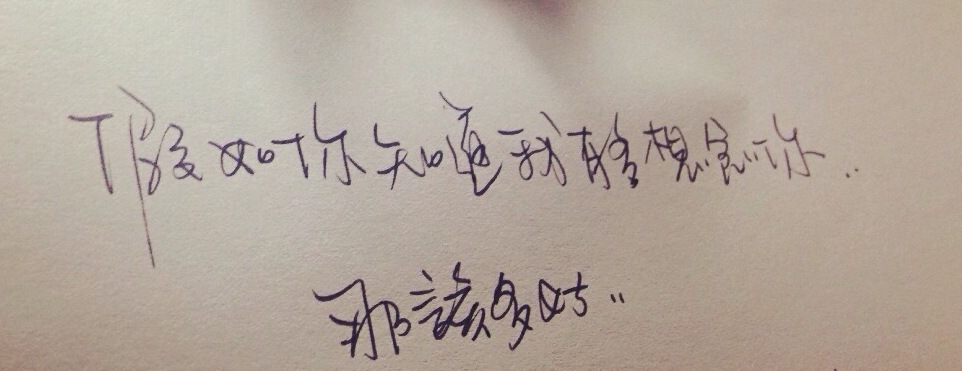 假如你知道我有多想念你..
那該多好..